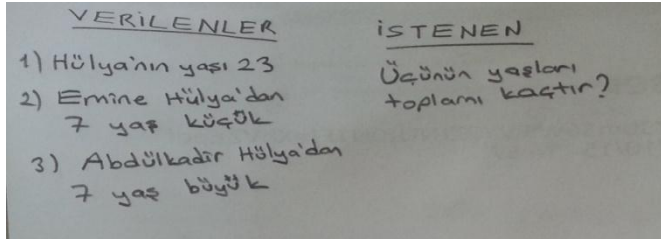 VERİLENLER
1) Hülya'nın yaşı 23
2) Emine Hülya'dan
7 yaş küçük
3) Abdülkadir Hülya'dan
7 yaş büyük
İSTENEN
Üçünün yaşları
toplamı kaçtır?